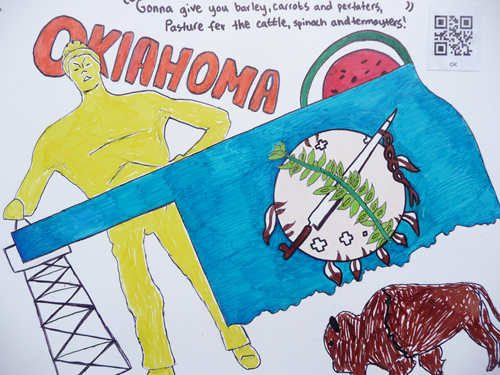 "Gonna give you barley, carrots and pertaters,
Pasture fer the cattle, spinach and termayters!"
OKlAHOMA
OK